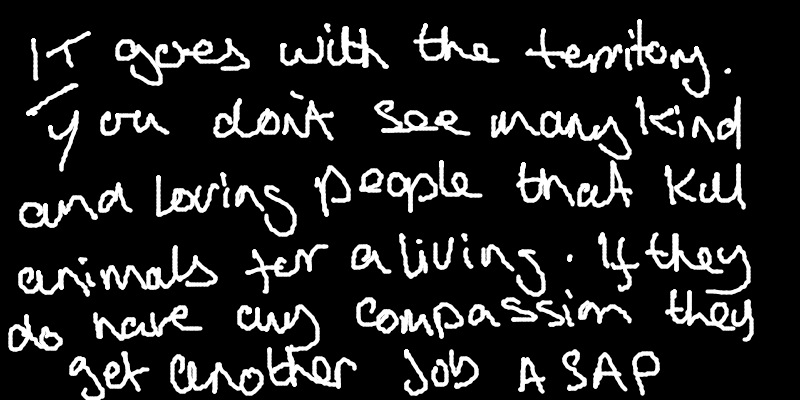 IT goes with the territory.
You don't see many kind
and loving people that kill
animals for a living. If they
do have any compassion they
get another job ASAP